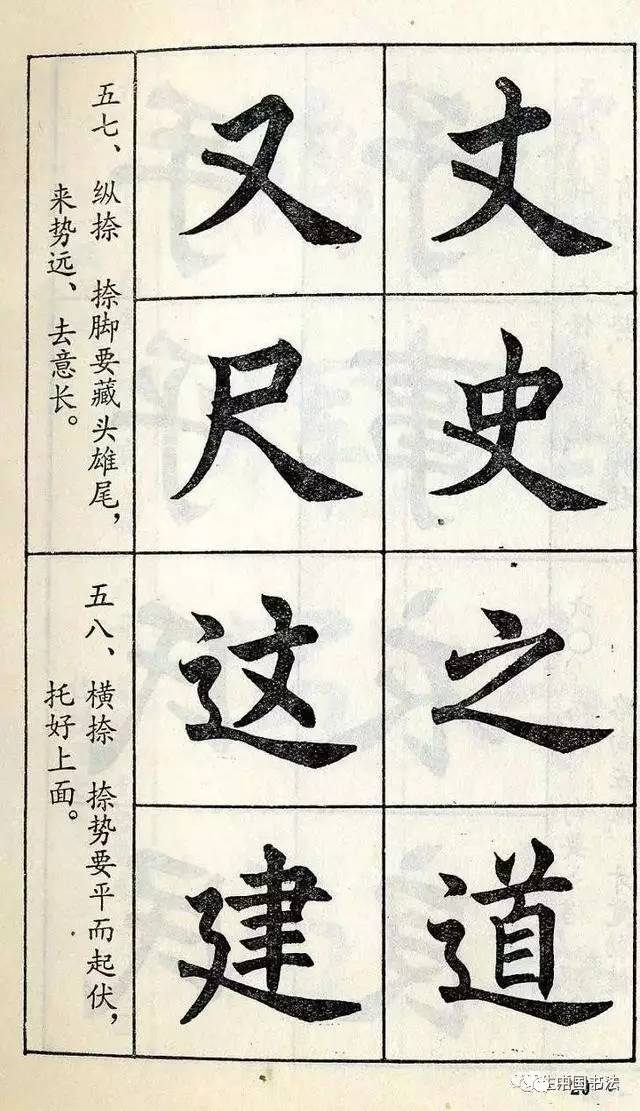 五七、纵捺 捺脚要藏头雄尾，
来势远、去意长。
丈又
史尺
五八、横捺 捺势要平而起伏，
托好上面。
之这
道建